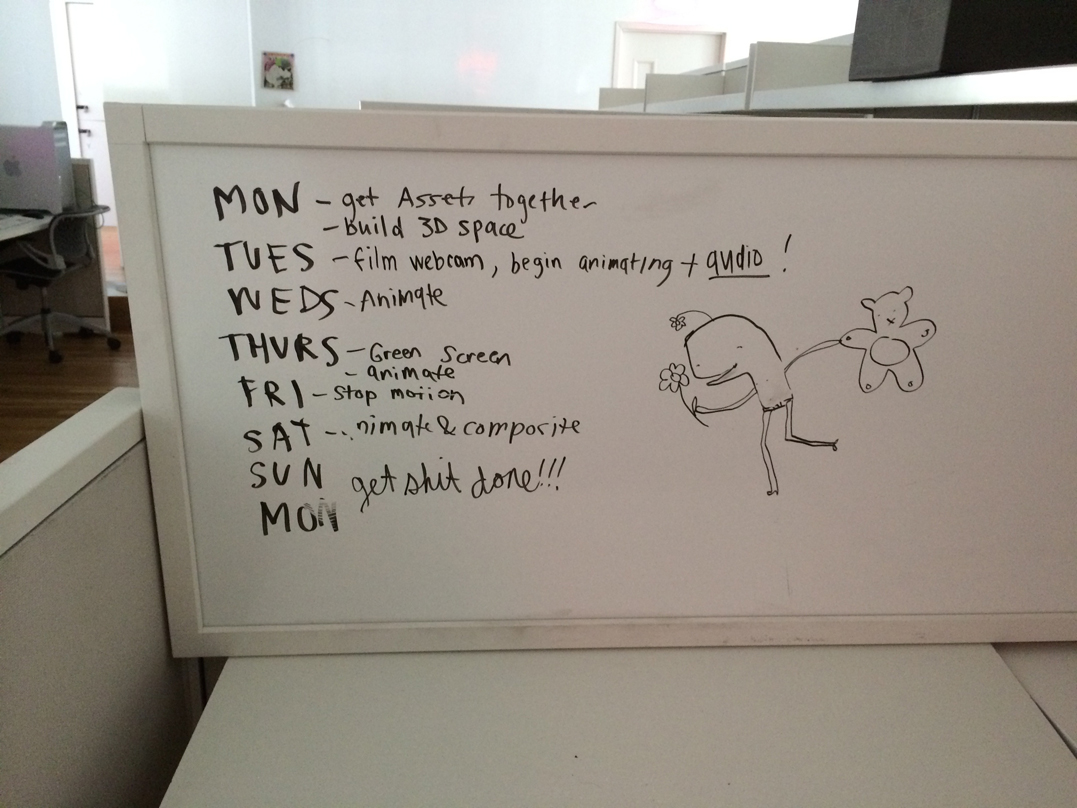 MON - get Assets together
- build 3D space
TUES - film webcam, begin animating + audio !
WEDS - Animate
THURS - Green Screen
- animate
FRI - Stop motion
SAT - ..nimate & composite
SUN get shit done!!!
MON